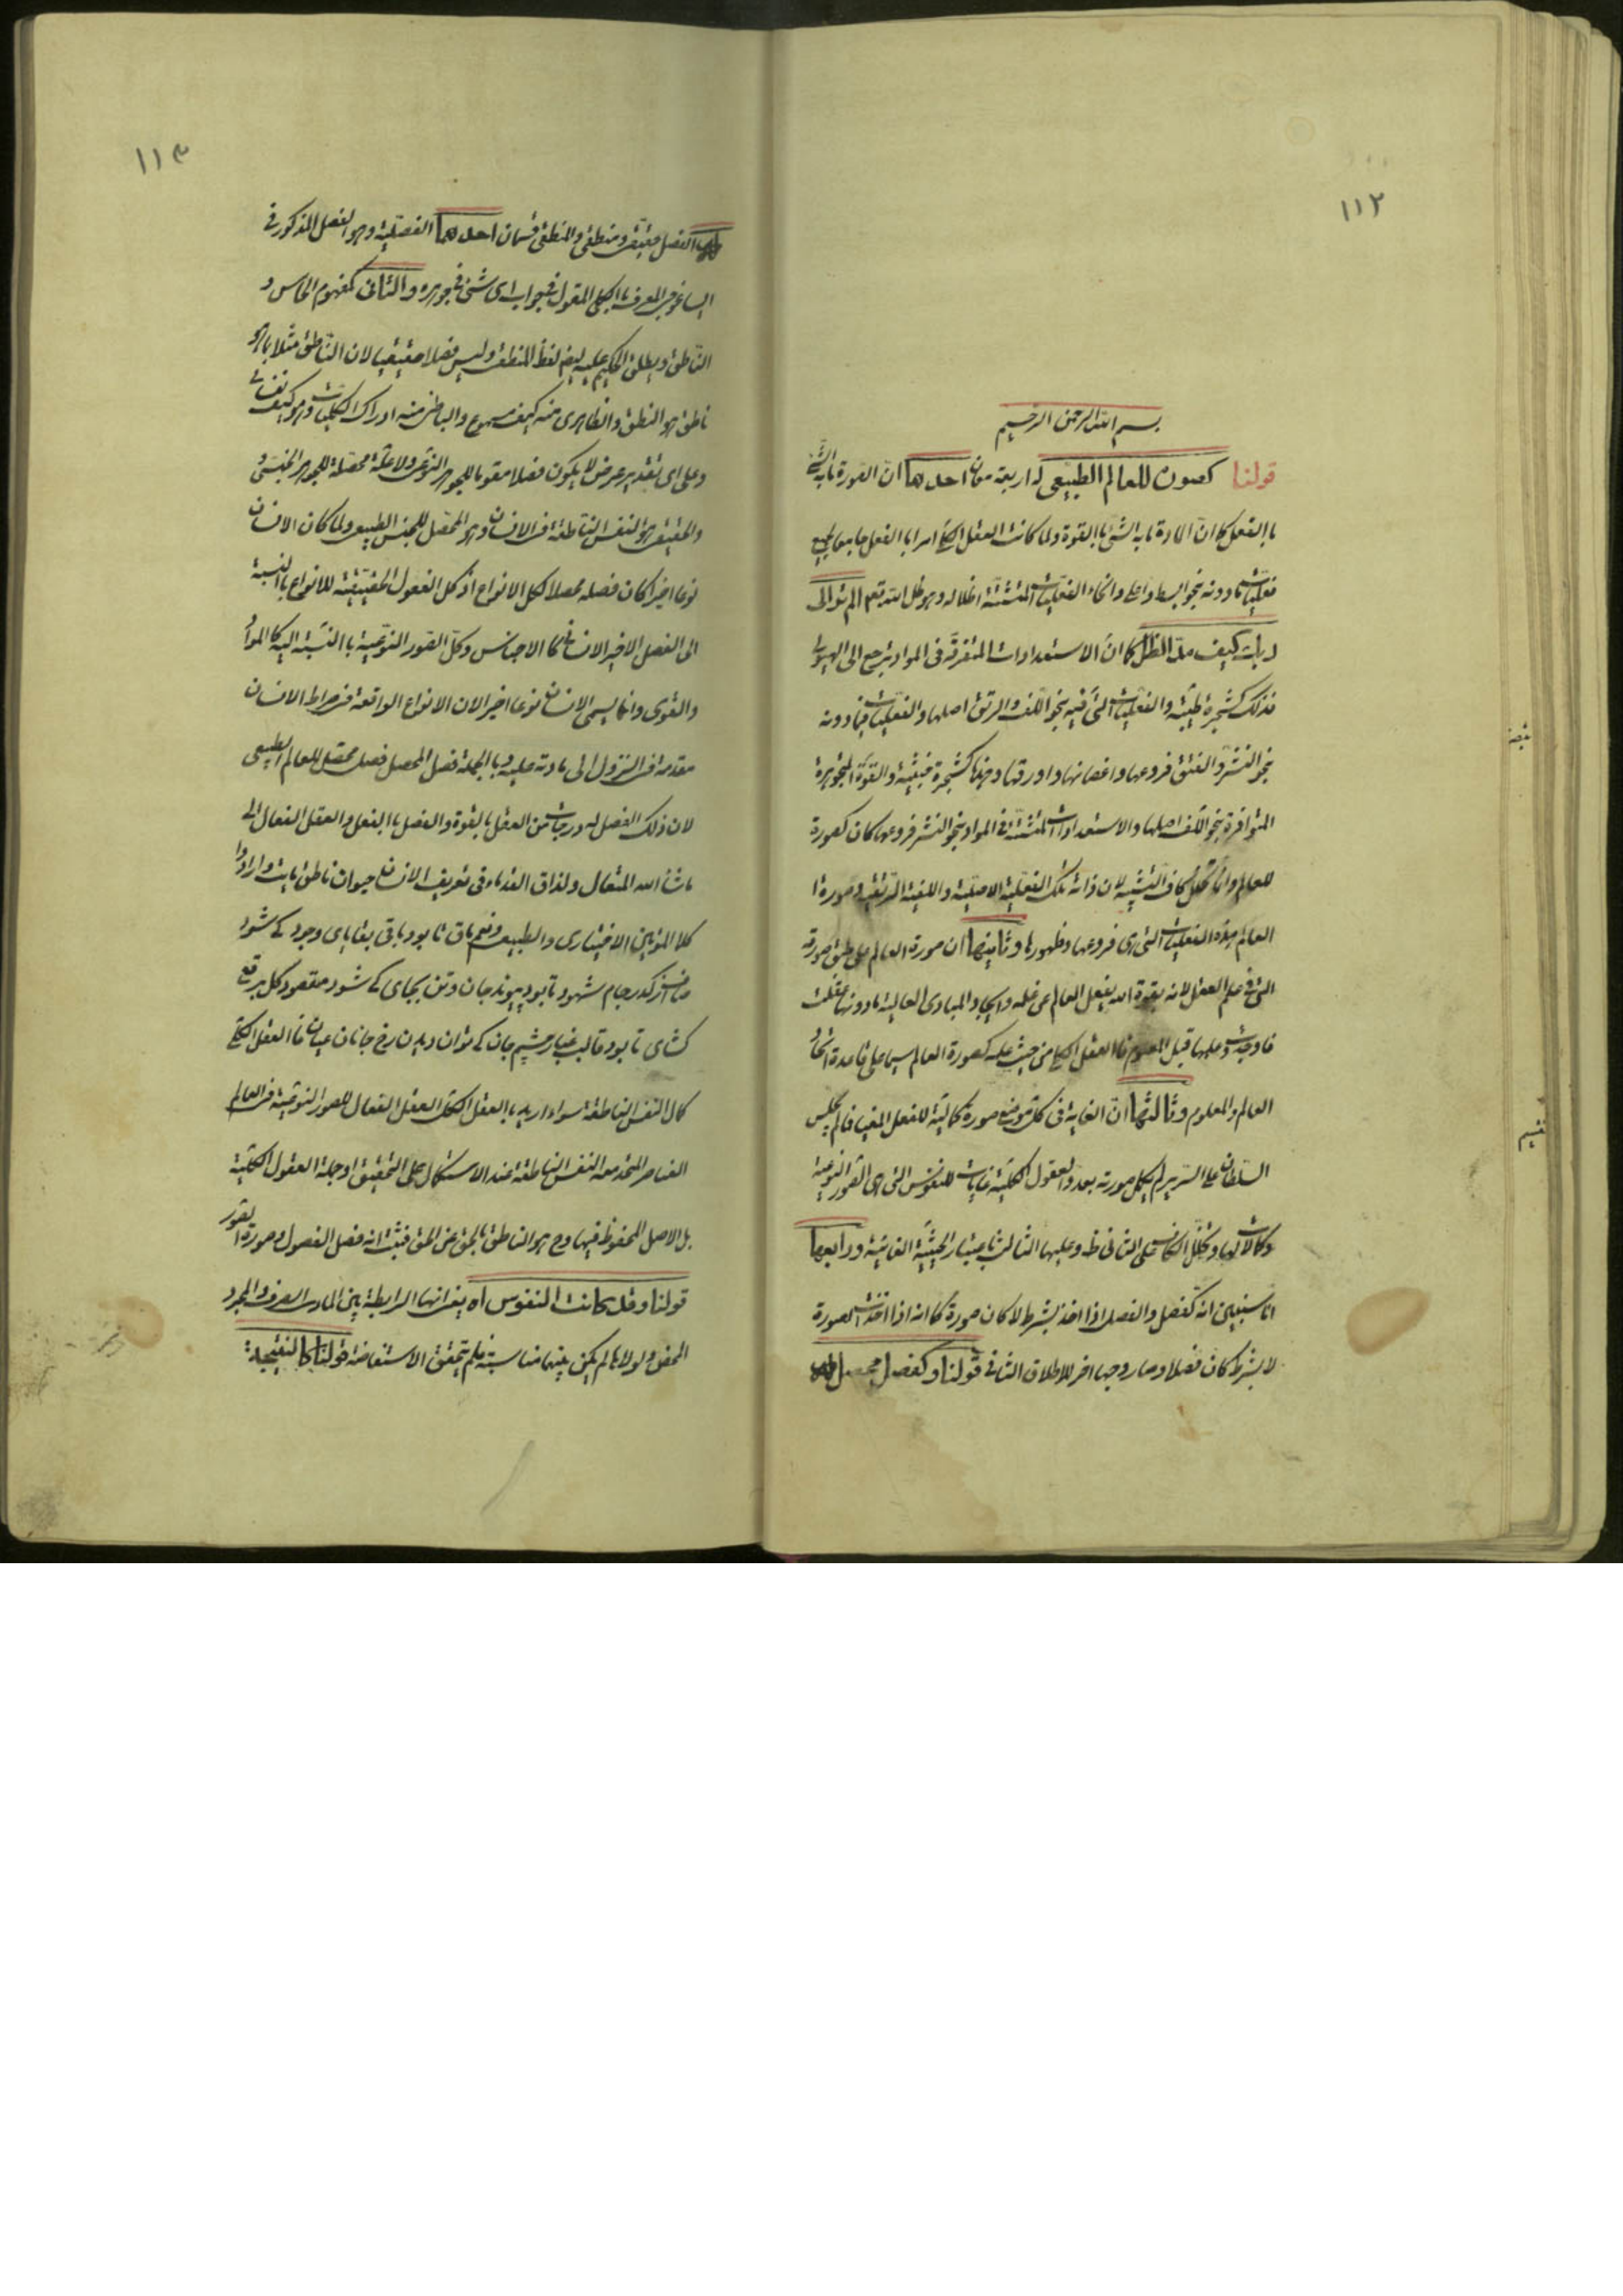 ١١٢
بسم الله الرحمن الرحيم
قولنا كصورة للعالم الطبيعى له اربعة معان احدها ان الصورة ما به الشئ
باالفعل كما ان المادة ما به الشئ باالقوة ولما كانت العقل الكلى امرا باالفعل جامعا لجميع
فعليات ما دونه بنحو ابسط واعلى وانحاء الفعليات المتشتتة اظلاله وهو ظل الله تعم الم تر الى
ربك كيف مد الظل كما ان الاستعدادات المتفرقة فى المواد يرجع الى الهيولى
فذلك كشجرة طيبة والفعليات التى فيه بنحو اللف والرتق اصلها والفعليات فيما دونه
بنحو النشر والفتق فروعها واغصانها واوراقها وهذا كشجرة خبيثة والقوة الجوهرية
المتوافرة بنحو اللف اصلها والاستعدادات المتشتتة فى المواد بنحو النشر فروعها كان كصورة
للعالم وانما تخلل كاف التشبيه لان ذاته تلك الفعلية الاصلية واللفية الرتقية وصورة
العالم هذه الفعليات التى هى فروعها وظهورها وثانيها ان صورة العالم على طبق صورته
التى فى علم العقل لانه بقدرة الله يفعل العالم عن علمه وايجاد المبادى العالية ما دونها عقلت
فاوجدت وعلمها قبل المعلوم فاالعقل الكلى من حيث علمه كصورة العالم سيما على قاعدة اتحاد
العالم والمعلوم وثالثها ان الغاية فى كل موضع صورة كمالية للفعل المغيا فما لم يجلس
السلطان على السرير لم يكمل صورته بعد والعقول الكلية غايات للنفوس التى هى الصور النوعية
وكمالات لها وتخلل الكاف على الثانى ظ وعليها الثالث باعتبار الحيثية الغائية ورابعها
انا سنبين انه كفصل والفصل اذا اخذ بشرط لا كان صورة كما انه اذا اخذت الصورة
لا بشرط كان فصلا وصار وجها اخر للاطلاق الثانى قولنا وكفصل محصل له
تبصة
تقسيم
١١٣
له الفصل حقيقى ومنطقى والمنطقى قسمان احدهما الفصلية وهو الفصل المذكور فى
ايساغوجى المعرف باالكلى المقول فى جواب اى شئ فى جوهره والثانى كمفهوم الحساس و
الناطق ويطلق الحكيم عليه ايضا لفظ المنطقى وليس فصلا حقيقيا لان الناطق مثلا ما هو
ناطق هو النطق والظاهرى منه كيف مسموع والباطنى منه ادراك الكليات وهو كيف نفسانى
وعلى اى تقدير عرض لا يكون فصلا مقوما للجوهر النوعى ولا علة محصلة للجوهر الجنسى و
والحقيقى هو النفس الناطقة فى الانسان وهو المحصل للجنس الطبيعى ولما كان الانسان
نوعا اخيرا كان فصله محصلا لكل الانواع اذ كل الفصول الحقيقية للانواع باالنسبة
الى الفصل الاخير الانسانى كالاجناس وكل الصور النوعية باالنسبة اليه كالمواد
والقوى وانما يسمى الانسان نوعا اخيرا لان الانواع الواقعة فى صراط الانسان
مقدمة فى النزول الى مادته عليه وباالجملة فصل المحصل فصل محصل للعالم الطبيعى
لان ذلك الفصل له درجات من العقل باالقوة والعقل باالفعل والعقل الفعال الى
ماشاء الله المتعال ولذا قال القدماء فى تعريف الانسان حيوان ناطق مايت وارادوا
كلا الموتين الاختيارى والطبيعى ونعم ما ق تا بود باقى بقاياى وجود كى شود
صاف از كدر جام شهود تا بود پيوند جان وتن بجاى كى شود مقصود كل برقع
گشاى تا بود قالب غبار چشم جان كى توان ديدن رخ جانان عيان فاالعقل الكلى
كمال النفس الناطقة سواء اريد باالعقل الكلى العقل الفعال للصور النوعية فى العالم
العناصر المتحد معه النفس الناطقة عند الاستكمال على التحقيق او جملة العقول الكلية
بل الاصل المحفوظ فيها وح هو الناطق باالحق عن الحق فثبت انه فصل الفصول وصورة الصور
قولنا وقد كانت النفوس اه يعنى انها الرابطة بين المادى الصرف والمجرد
المحض ولولاها لم يكن بينهما مناسبة فلم يتحقق الاستفاضة قولنا كالنتيجة